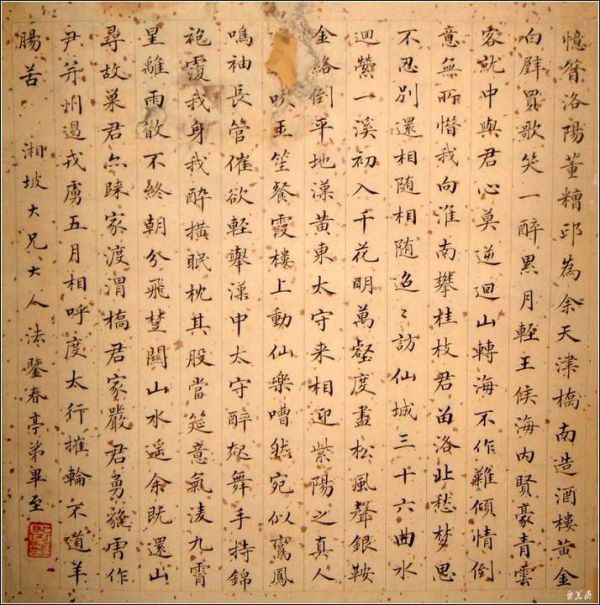 憶昔洛陽董糟邱為余天津橋南造酒樓黃金
白璧買歌笑一醉累月輕王侯海內賢豪青雲
客就中與君心莫逆迴山轉海不作難傾情倒
意無所惜我向淮南攀桂枝君留洛北愁夢思
不忍別還相隨相隨迢〻訪仙城三十六曲水
迴縈一溪初入千花明萬壑度盡松風聲銀鞍
金絡倒平地漢黃東太守来相迎紫陽之真人
吹玉笙餐霞樓上動仙樂嘈然宛似鸞鳳
鳴袖長管催欲輕舉漢中太守醉起舞手持錦
袍覆我身我醉橫眠枕其股當筵意氣凌九霄
星離雨散不終朝分飛楚關山水遙余既還山
尋故巢君亦歸家渡渭橋君家嚴君勇貔虎作
尹并州遏戎虜五月相呼度太行摧輪不道羊
腸苦 湘坡大兄大人法鑒春亭弟畢至